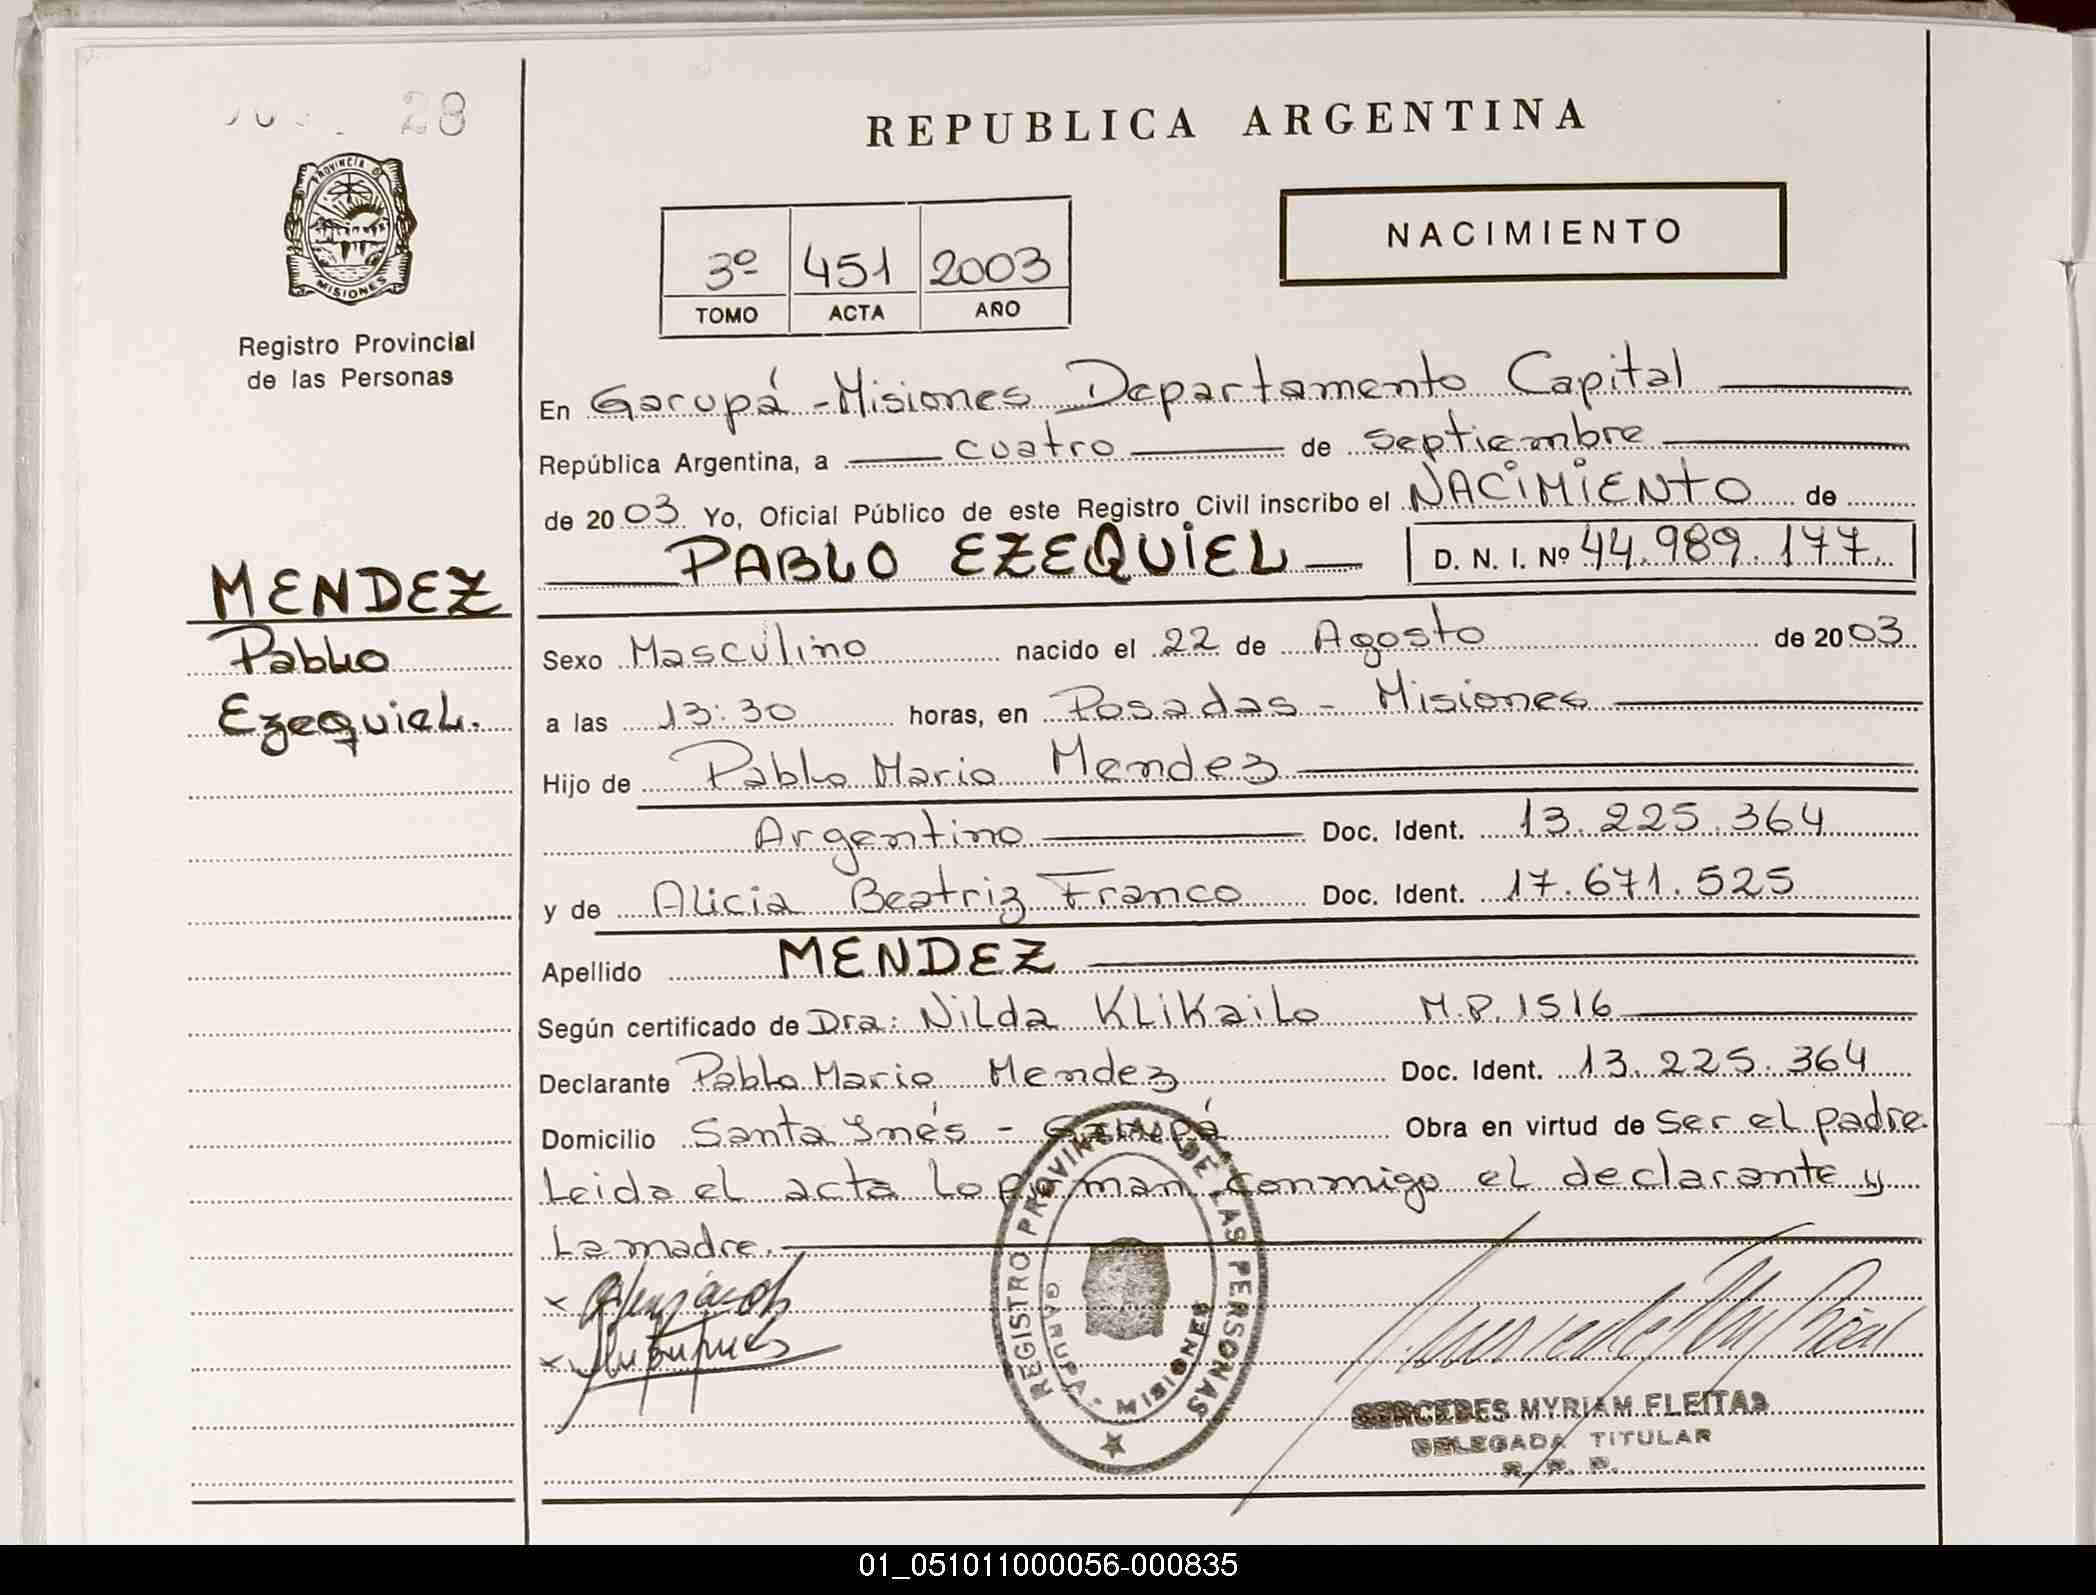 28
REPUBLICA ARGENTINA
PROVINCIA DE MISIONES
Registro Provincial
de las Personas
3º 451 2003
TOMO ACTA AÑO
NACIMIENTO
En Garupá - Misiones Departamento Capital
República Argentina, a cuatro de septiembre
de 2003 Yo, Oficial Público de este Registro Civil inscribo el NACIMIENTO de
PABLO EZEQUIEL D. N. I. Nº 44.989.177.
MENDEZ
Pablo
Ezequiel.
Sexo Masculino nacido el 22 de Agosto de 2003
a las 13:30 horas, en Posadas - Misiones
Hijo de Pablo Mario Mendez
Argentino Doc. Ident. 13.225.364
y de Alicia Beatriz Franco Doc. Ident. 17.671.525
Apellido MENDEZ
Según certificado de Dra: Nilda Klikailo M.P. 1516
Declarante Pablo Mario Mendez Doc. Ident. 13.225.364
Domicilio Santa Inés - Garupá Obra en virtud de ser el padre.
Leida el acta lo firman conmigo el declarante y
la madre.
REGISTRO PROVINCIAL DE LAS PERSONAS
GARUPA - MISIONES
MERCEDES MYRIAM FLEITAS
DELEGADA TITULAR
R. P. P.
01_051011000056-000835